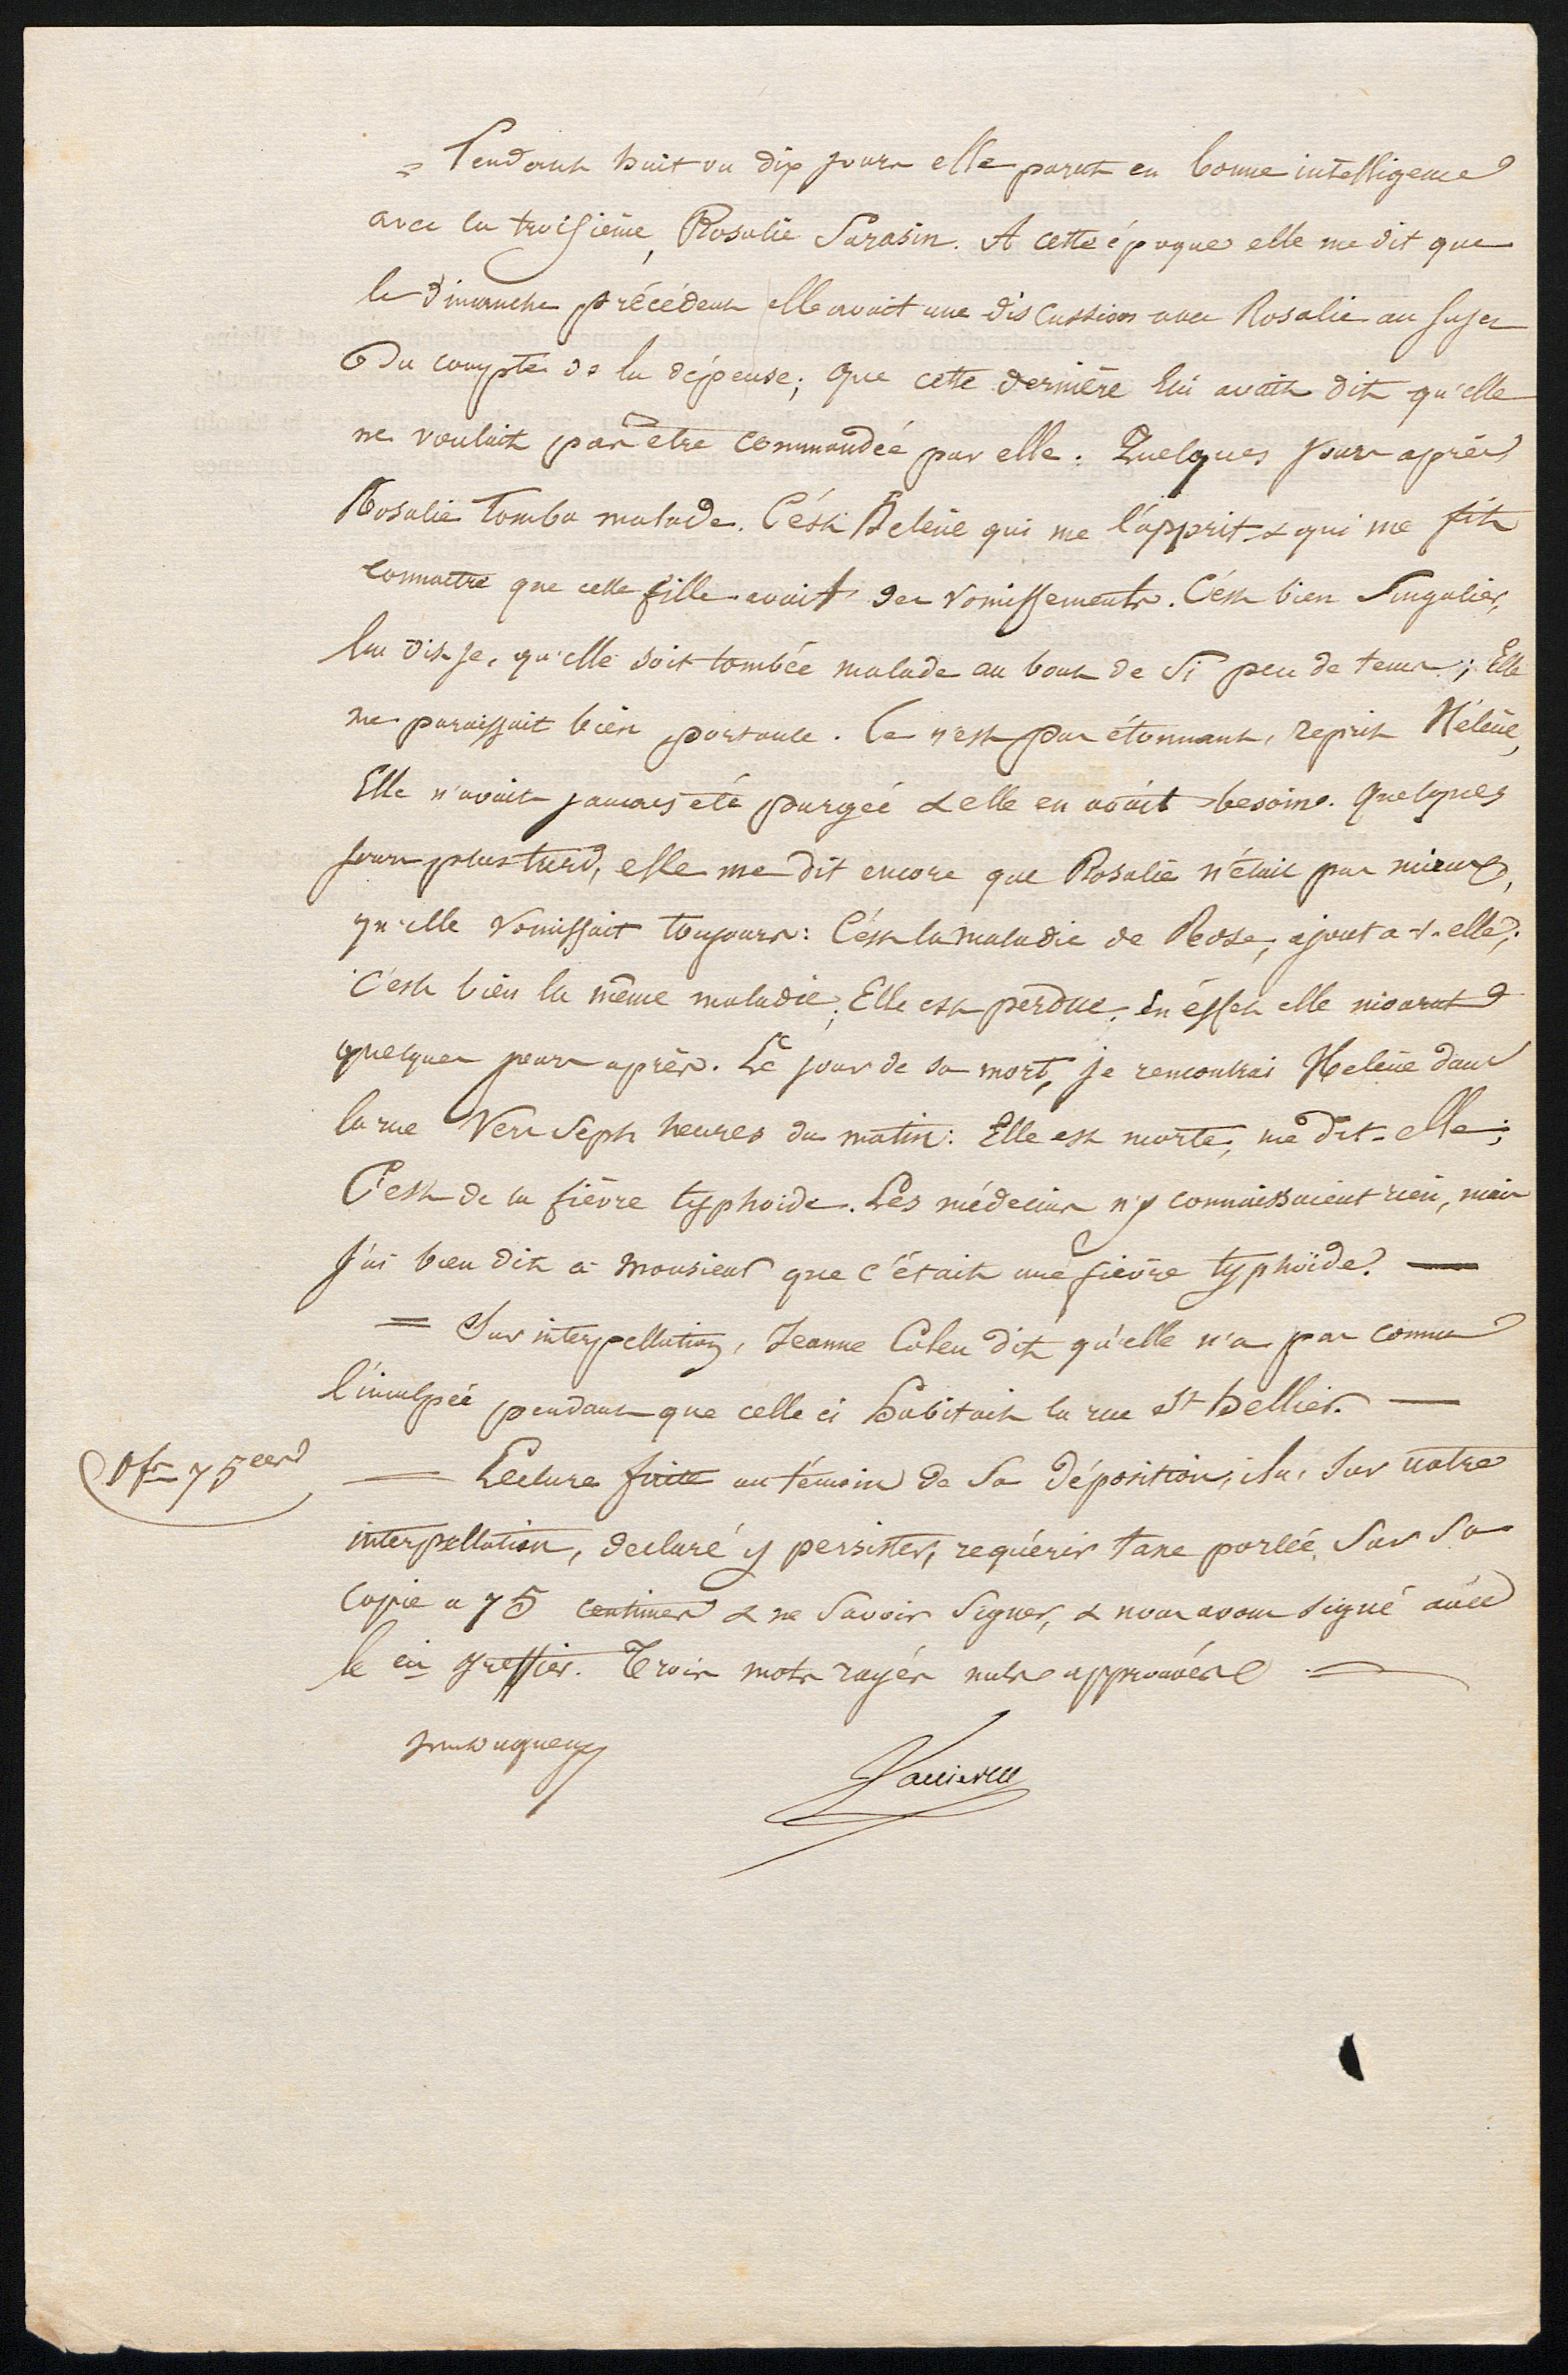 = Pendant huit ou dix jours elle parut en bonne intelligence
avec la troisième, Rosalie Sarasin. A cette époque elle me dit que
le dimanche précédent elle avait une discussion avec Rosalie au sujet
du compte de la dépense; que cette dernière lui avait dit qu'elle
ne voulait pas être commandée par elle. Quelques jours après
Rosalie tomba malade. C'est Hélène qui me l'apprit & qui me fit
connaitre que cette fille avait des vomissements. C'est bien singulier,
lui dis-je, qu'elle soit tombée malade au bout de si peu de tems; Elle
me paraissait bien portante. Ce n'est pas étonnant, reprit Hélène,
Elle n'avait jamais été purgée & elle en avait besoin. Quelques
jours plus tard, elle me dit encore que Rosalie n'était pas mieux,
qu'elle vomissait toujours: C'est la maladie de Rose, ajouta-t-elle;
c'est bien la même maladie; Elle est perdue. En effet elle mourut
quelques jours après. Le jour de sa mort, je rencontrai Hélène dans
la rue vers sept heures du matin: Elle est morte, me dit-elle;
C'est de la fièvre typhoide. Les médecins n'y connaissaient rien, mais
j'ai bien dit à Monsieur que c'était une fièvre typhoïde. —
= Sur interpellation, Jeanne Coleu dit qu'elle n'a pas connu
l'inculpée pendant que celle ci habitait la rue St hellier. —
0fr 75 cent
= Lecture faite au témoin de sa déposition, il a, sur notre
interpellation, déclaré y persister, requérir taxe portée sur sa
copie a 75 centimes & ne savoir signer, & nous avons signé avec
le cis greffier. Trois mots rayés nuls approuvés =